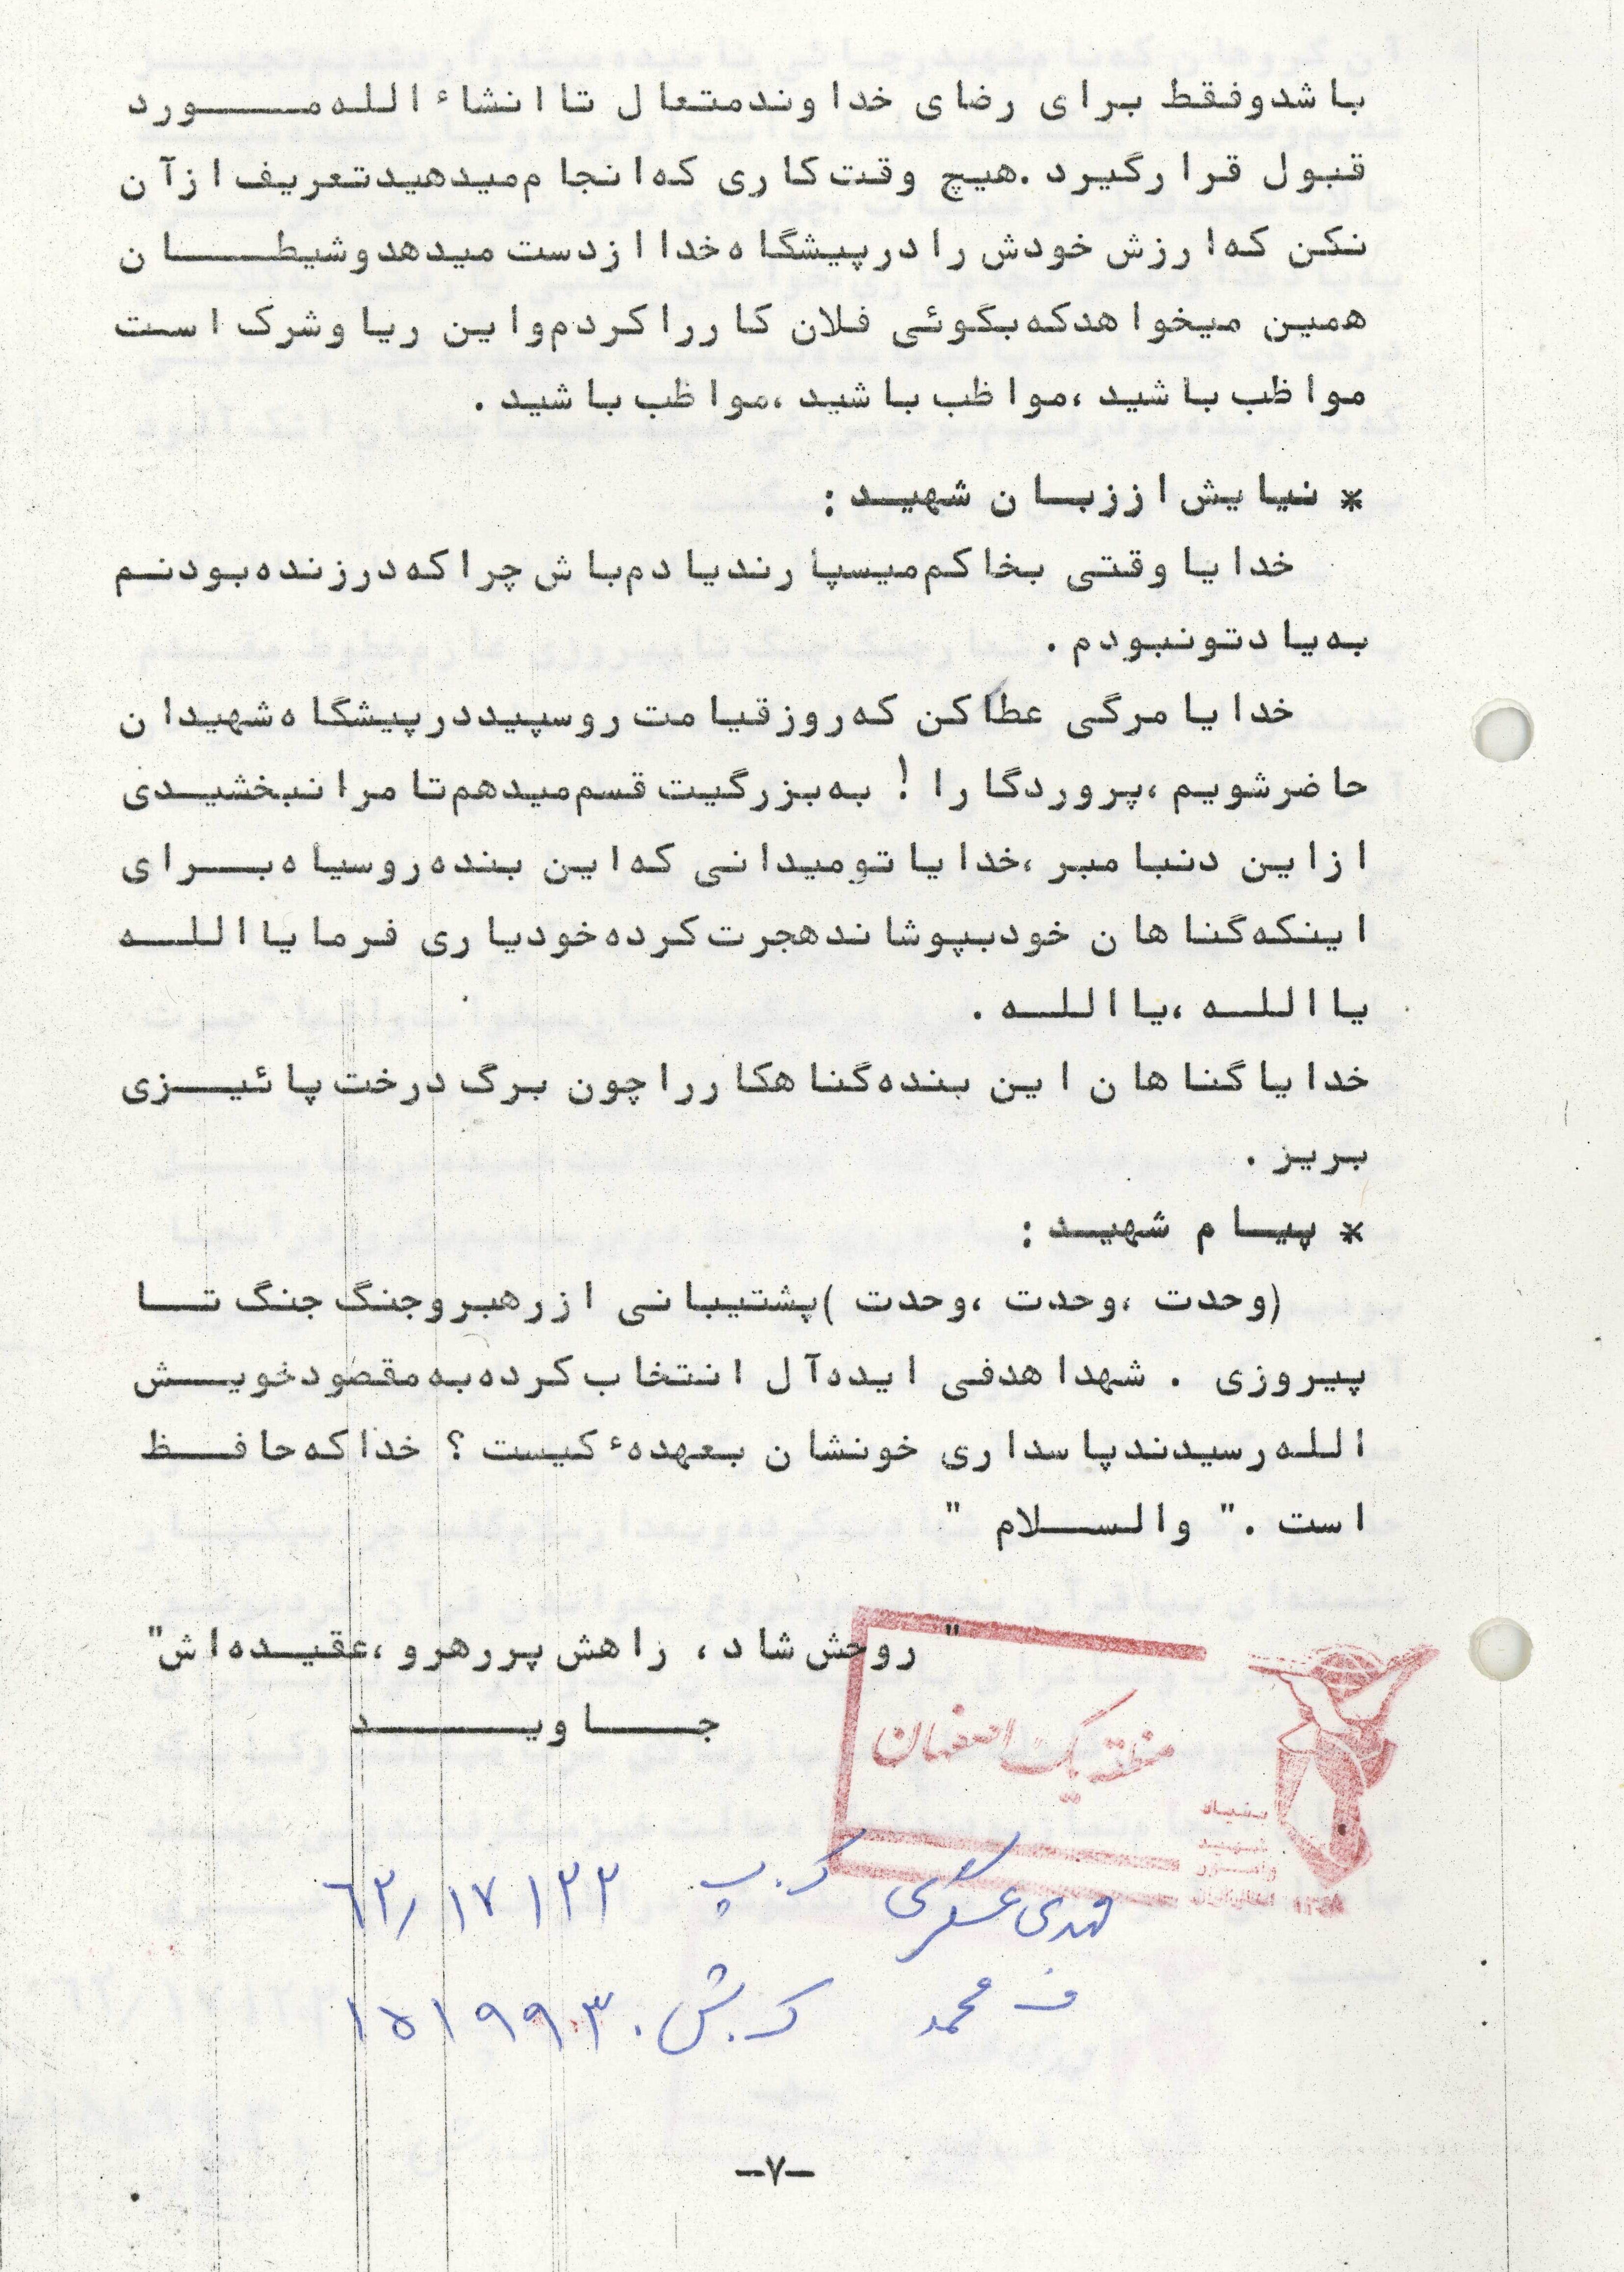 باشدوفقط برای رضای خداوندمتعال تاانشاء الله مورد
قبول قرارگیرد.هیچ وقت کاری که انجام میدهیدتعریف ازآن
نکن که ارزش خودش رادرپیشگاه خدا ازدست میدهدوشیطان
همین میخواهدکه بگوئی فلان کارراکردم واین ریاوشرک است
مواظب باشید،مواظب باشید،مواظب باشید.
* نیایش اززبان شهید:
خدایا وقتی بخاکم میسپارندیادم باش چراکه درزنده بودنم
به یادتونبودم.
خدایا مرگی عطاکن که روزقیامت روسپیددرپیشگاه شهیدان
حاضرشویم،پروردگارا! به بزرگیت قسم میدهم تا مرانبخشیدی
ازاین دنیا مبر،خدایا تومیدانی که این بنده روسیاه برای
اینکه گناهان خودبپوشاندهجرت کرده خودیاری فرمایاالله
یاالله،یاالله.
خدایاگناهان این بنده گناهکارراچون برگ درخت پائیزی
بریز.
* پیام شهید:
(وحدت،وحدت،وحدت)پشتیبانی ازرهبروجنگ جنگ تا
پیروزی. شهداهدفی ایده آل انتخاب کرده به مقصودخویش
الله رسیدندپاسداری خونشان بعهدهٔ کیست؟ خداکه حافظ
است." والسلام "
" روحش شاد، راهش پررهرو،عقیده اش"
جاوید
منطقه یک اصفهان
بنیاد
شهید
وامور
ایثارگران
مهدی عسگری ک.پ ٦٢/١٧١٢٢
ف محمد ک.ش. ١٥١٩٩٣
-٧-